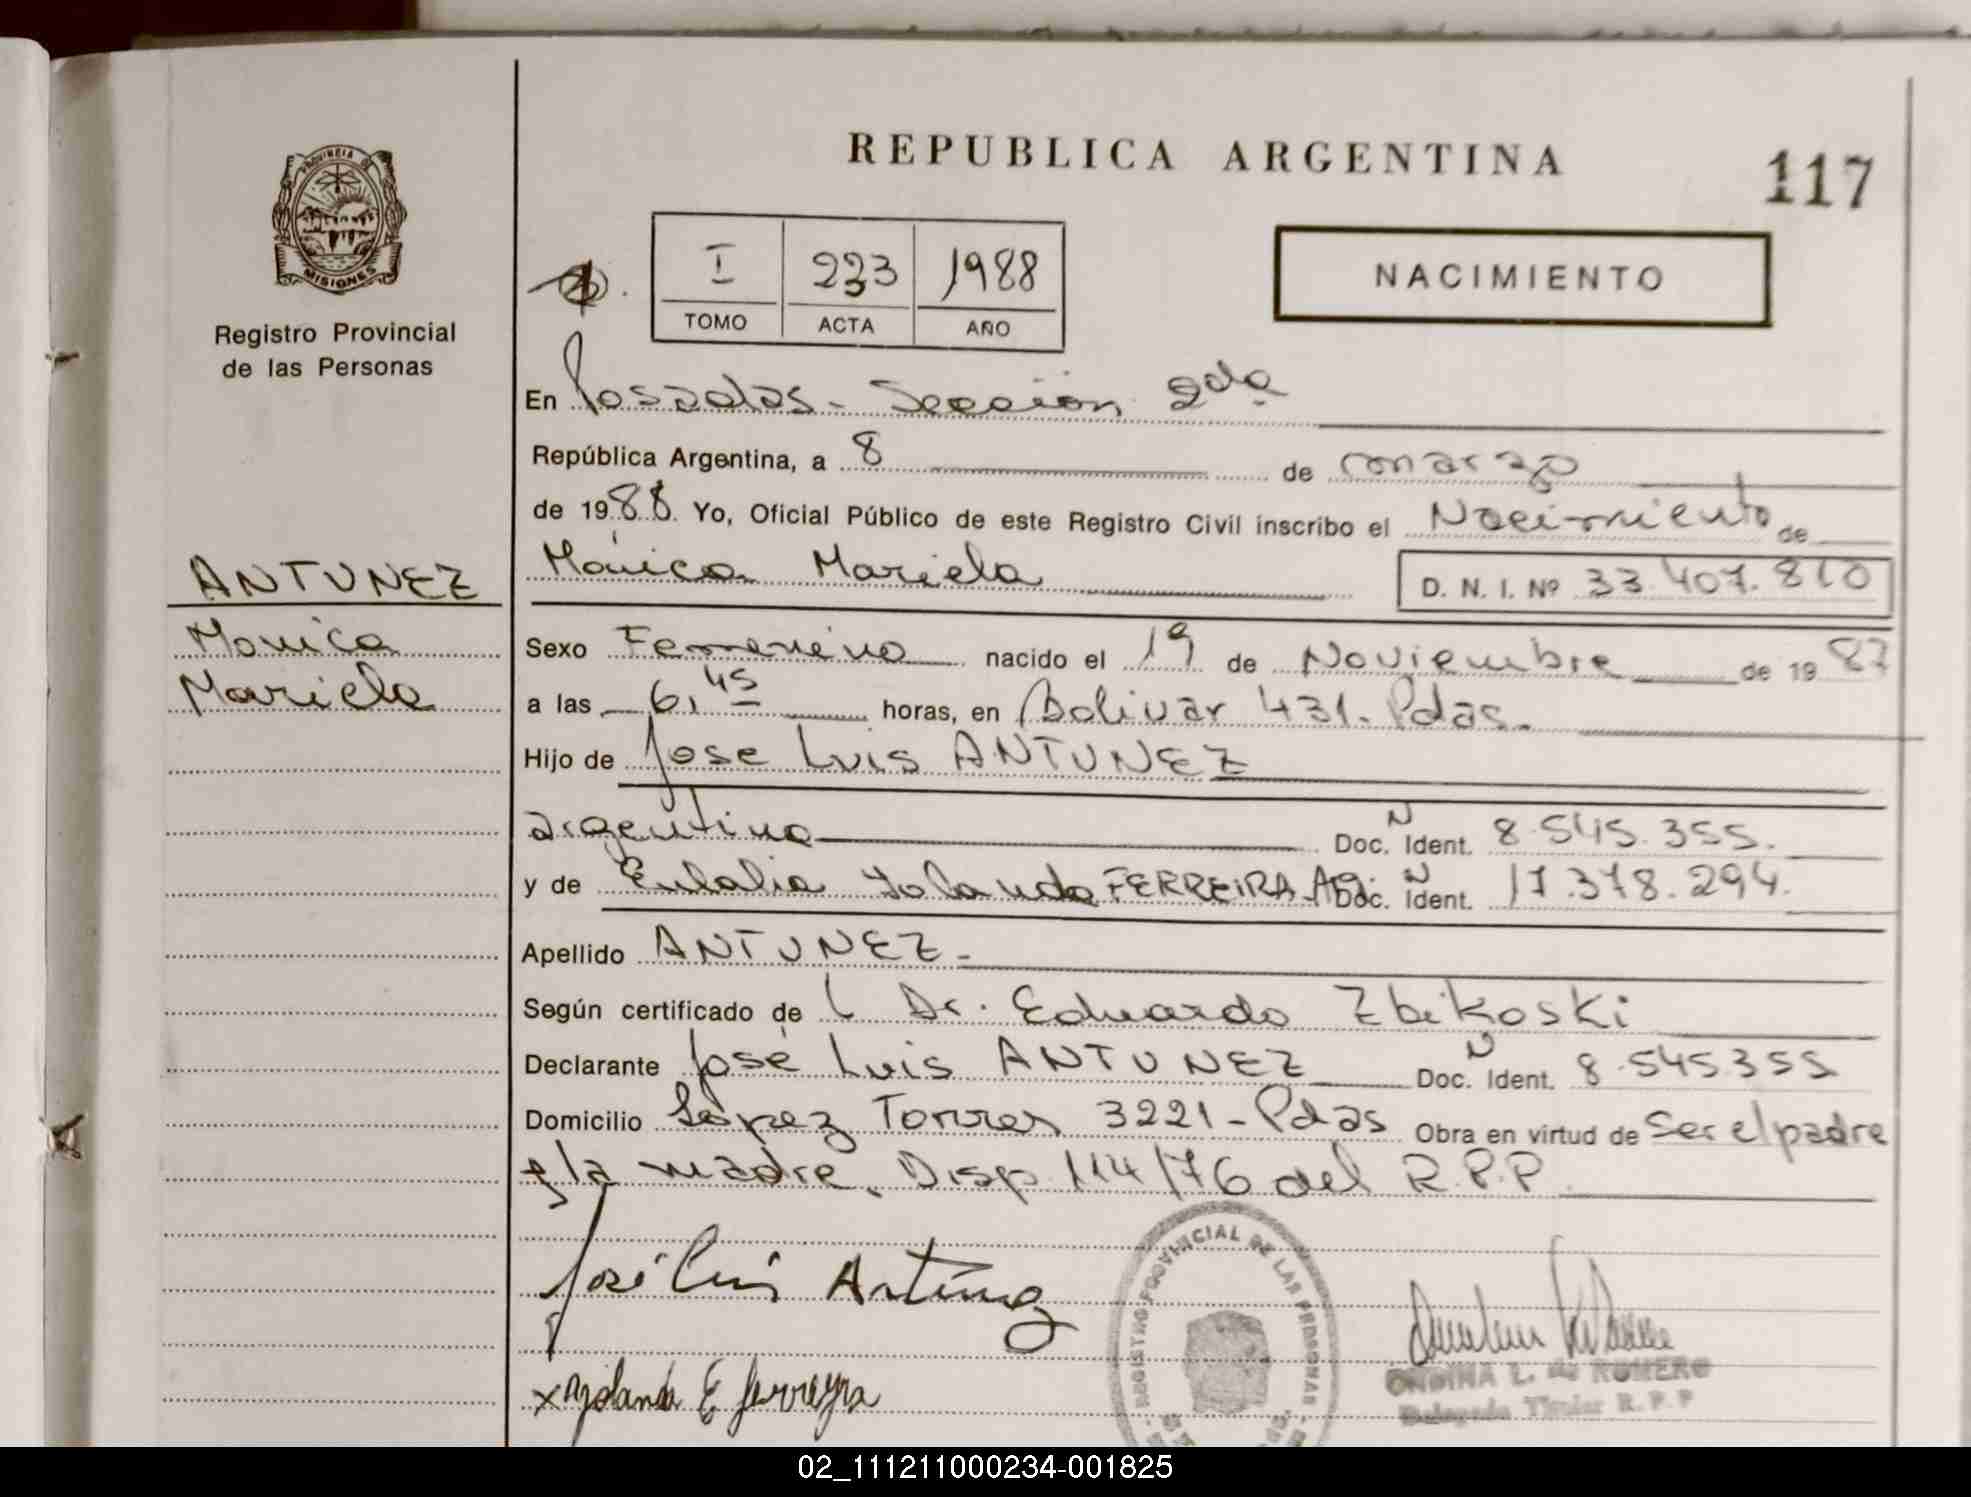 REPUBLICA ARGENTINA
117
PROVINCIA DE
MISIONES
Registro Provincial
de las Personas
I 223 1988
TOMO ACTA AÑO
NACIMIENTO
En Posadas - Sección 2da
República Argentina, a 8 de marzo
de 1988. Yo, Oficial Público de este Registro Civil inscribo el Nacimiento de
Mónica Mariela D. N. I. Nº 33.407.810
ANTUNEZ
Monica
Mariela
Sexo Femenino nacido el 19 de Noviembre de 1987
a las 6,45 horas, en Bolivar 431. Pdas.
Hijo de Jose Luis ANTUNEZ
argentino Doc. N Ident. 8.545.355.
y de Eulalia Yolanda FERREIRA Ag. Doc. N Ident. 17.378.294.
Apellido ANTUNEZ-
Según certificado de l Dr. Eduardo Zbikoski
Declarante José Luis ANTUNEZ Doc. N Ident. 8.545355
Domicilio López Torres 3221 - Pdas Obra en virtud de ser el padre
y la madre. Disp. 114/76 del R.P.P.
José Luis Antúnez
REGISTRO PROVINCIAL DE LAS PERSONAS
ONDINA L. de ROMERO
Delegada Titular R.P.P
x Yolanda E Ferreyra
02_111211000234-001825